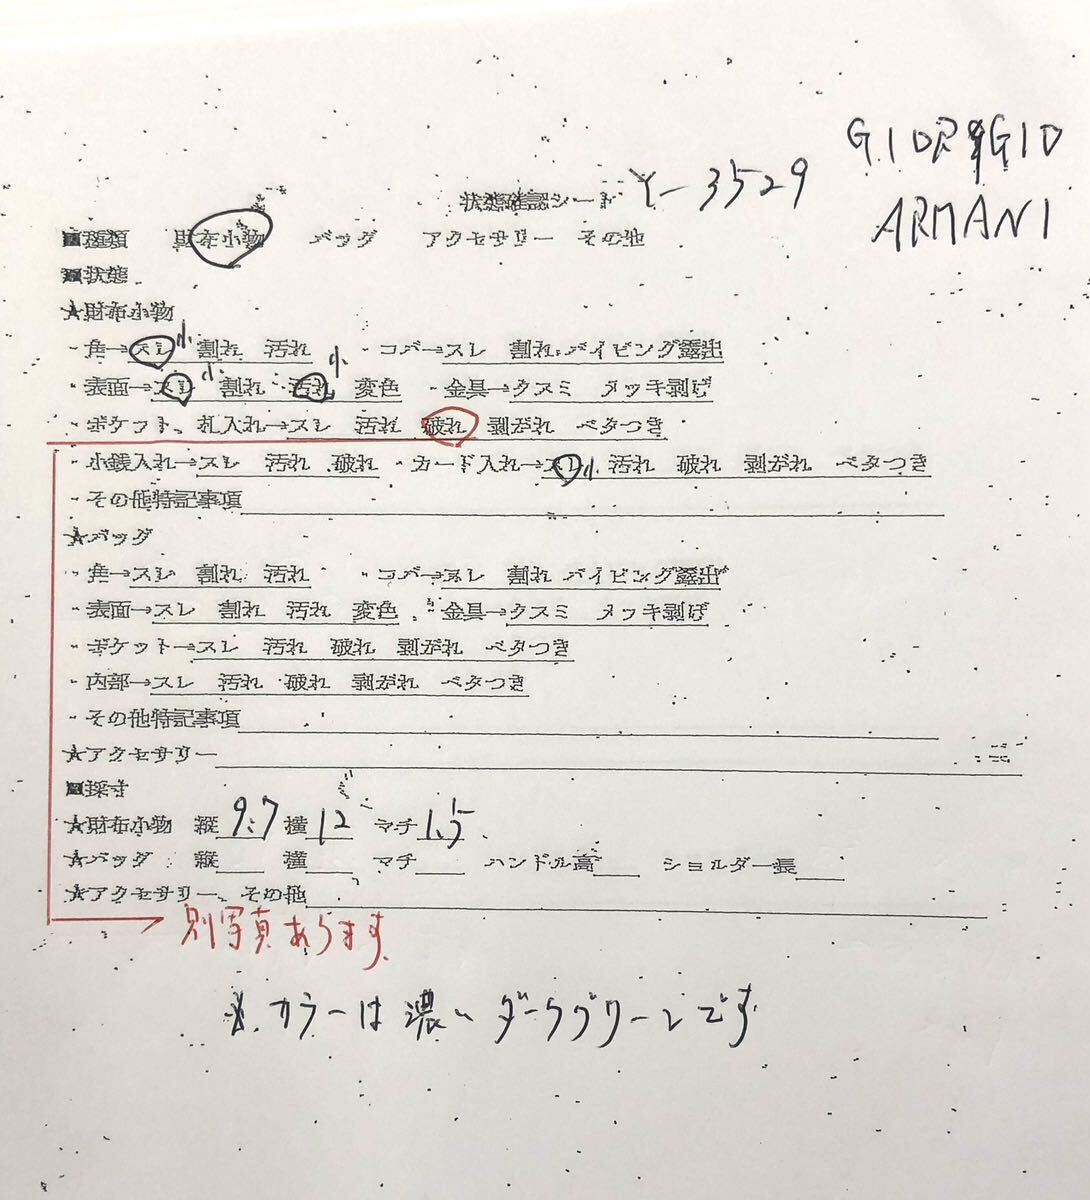 GIORGIO
ARMANI
状態確認シート Y-3529
■種類 財布小物 バッグ アクセサリー その他
■状態
★財布小物
・角→スレ小 割れ 汚れ ・コバ→スレ 割れ パイピング露出
・表面→スレ小 割れ 汚れ小 変色 ・金具→クスミ メッキ剥げ
・ポケット、札入れ→スレ 汚れ 破れ 剥がれ ベタつき
・小銭入れ→スレ 汚れ 破れ ・カード入れ→スレ小 汚れ 破れ 剥がれ ベタつき
・その他特記事項
★バッグ
・角→スレ 割れ 汚れ ・コバ→スレ 割れ パイピング露出
・表面→スレ 割れ 汚れ 変色 ・金具→クスミ メッキ剥げ
・ポケット→スレ 汚れ 破れ 剥がれ ベタつき
・内部→スレ 汚れ 破れ 剥がれ ベタつき
・その他特記事項
★アクセサリー
■採寸
★財布小物 縦 9.7 横 12 マチ 1.5
★バッグ 縦 横 マチ ハンドル高 ショルダー長
★アクセサリー、その他
別写真あります
※.カラーは濃いダークグリーンです